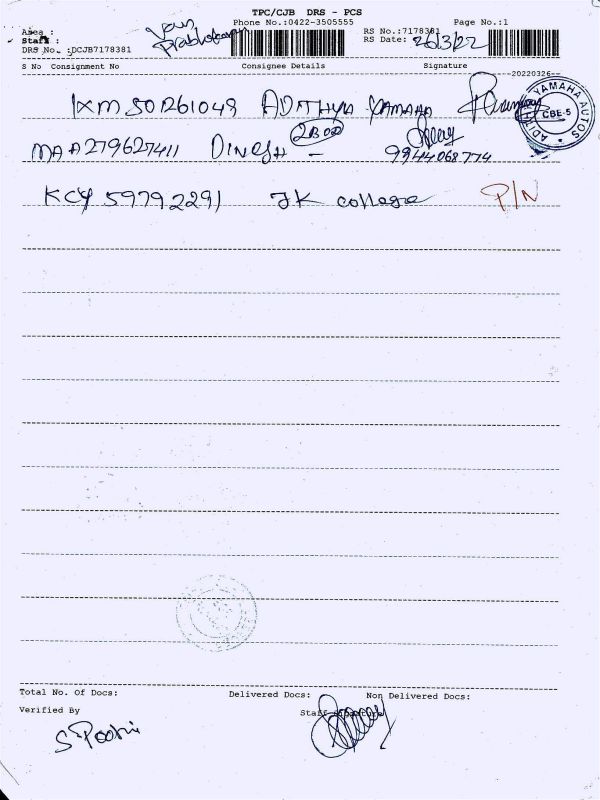 TPC/CJB DRS - PCS
Phone No.:0422-3505555 Page No.:1
Area :
Staff :
Prabhakaran
RS No.:7178381
RS Date: 26/3/22
DRS No. :DCJB7178381
S No Consignment No Consignee Details Signature
20220326
IXM 501261049 ADITHYA YAMAHA
YAMAHA AUTOS CBE-5
MAA279627411 DINESH - 9944068774
KCY 59792291 JK college P/N
Total No. Of Docs: Delivered Docs: Non Delivered Docs:
Verified By Staff Signature